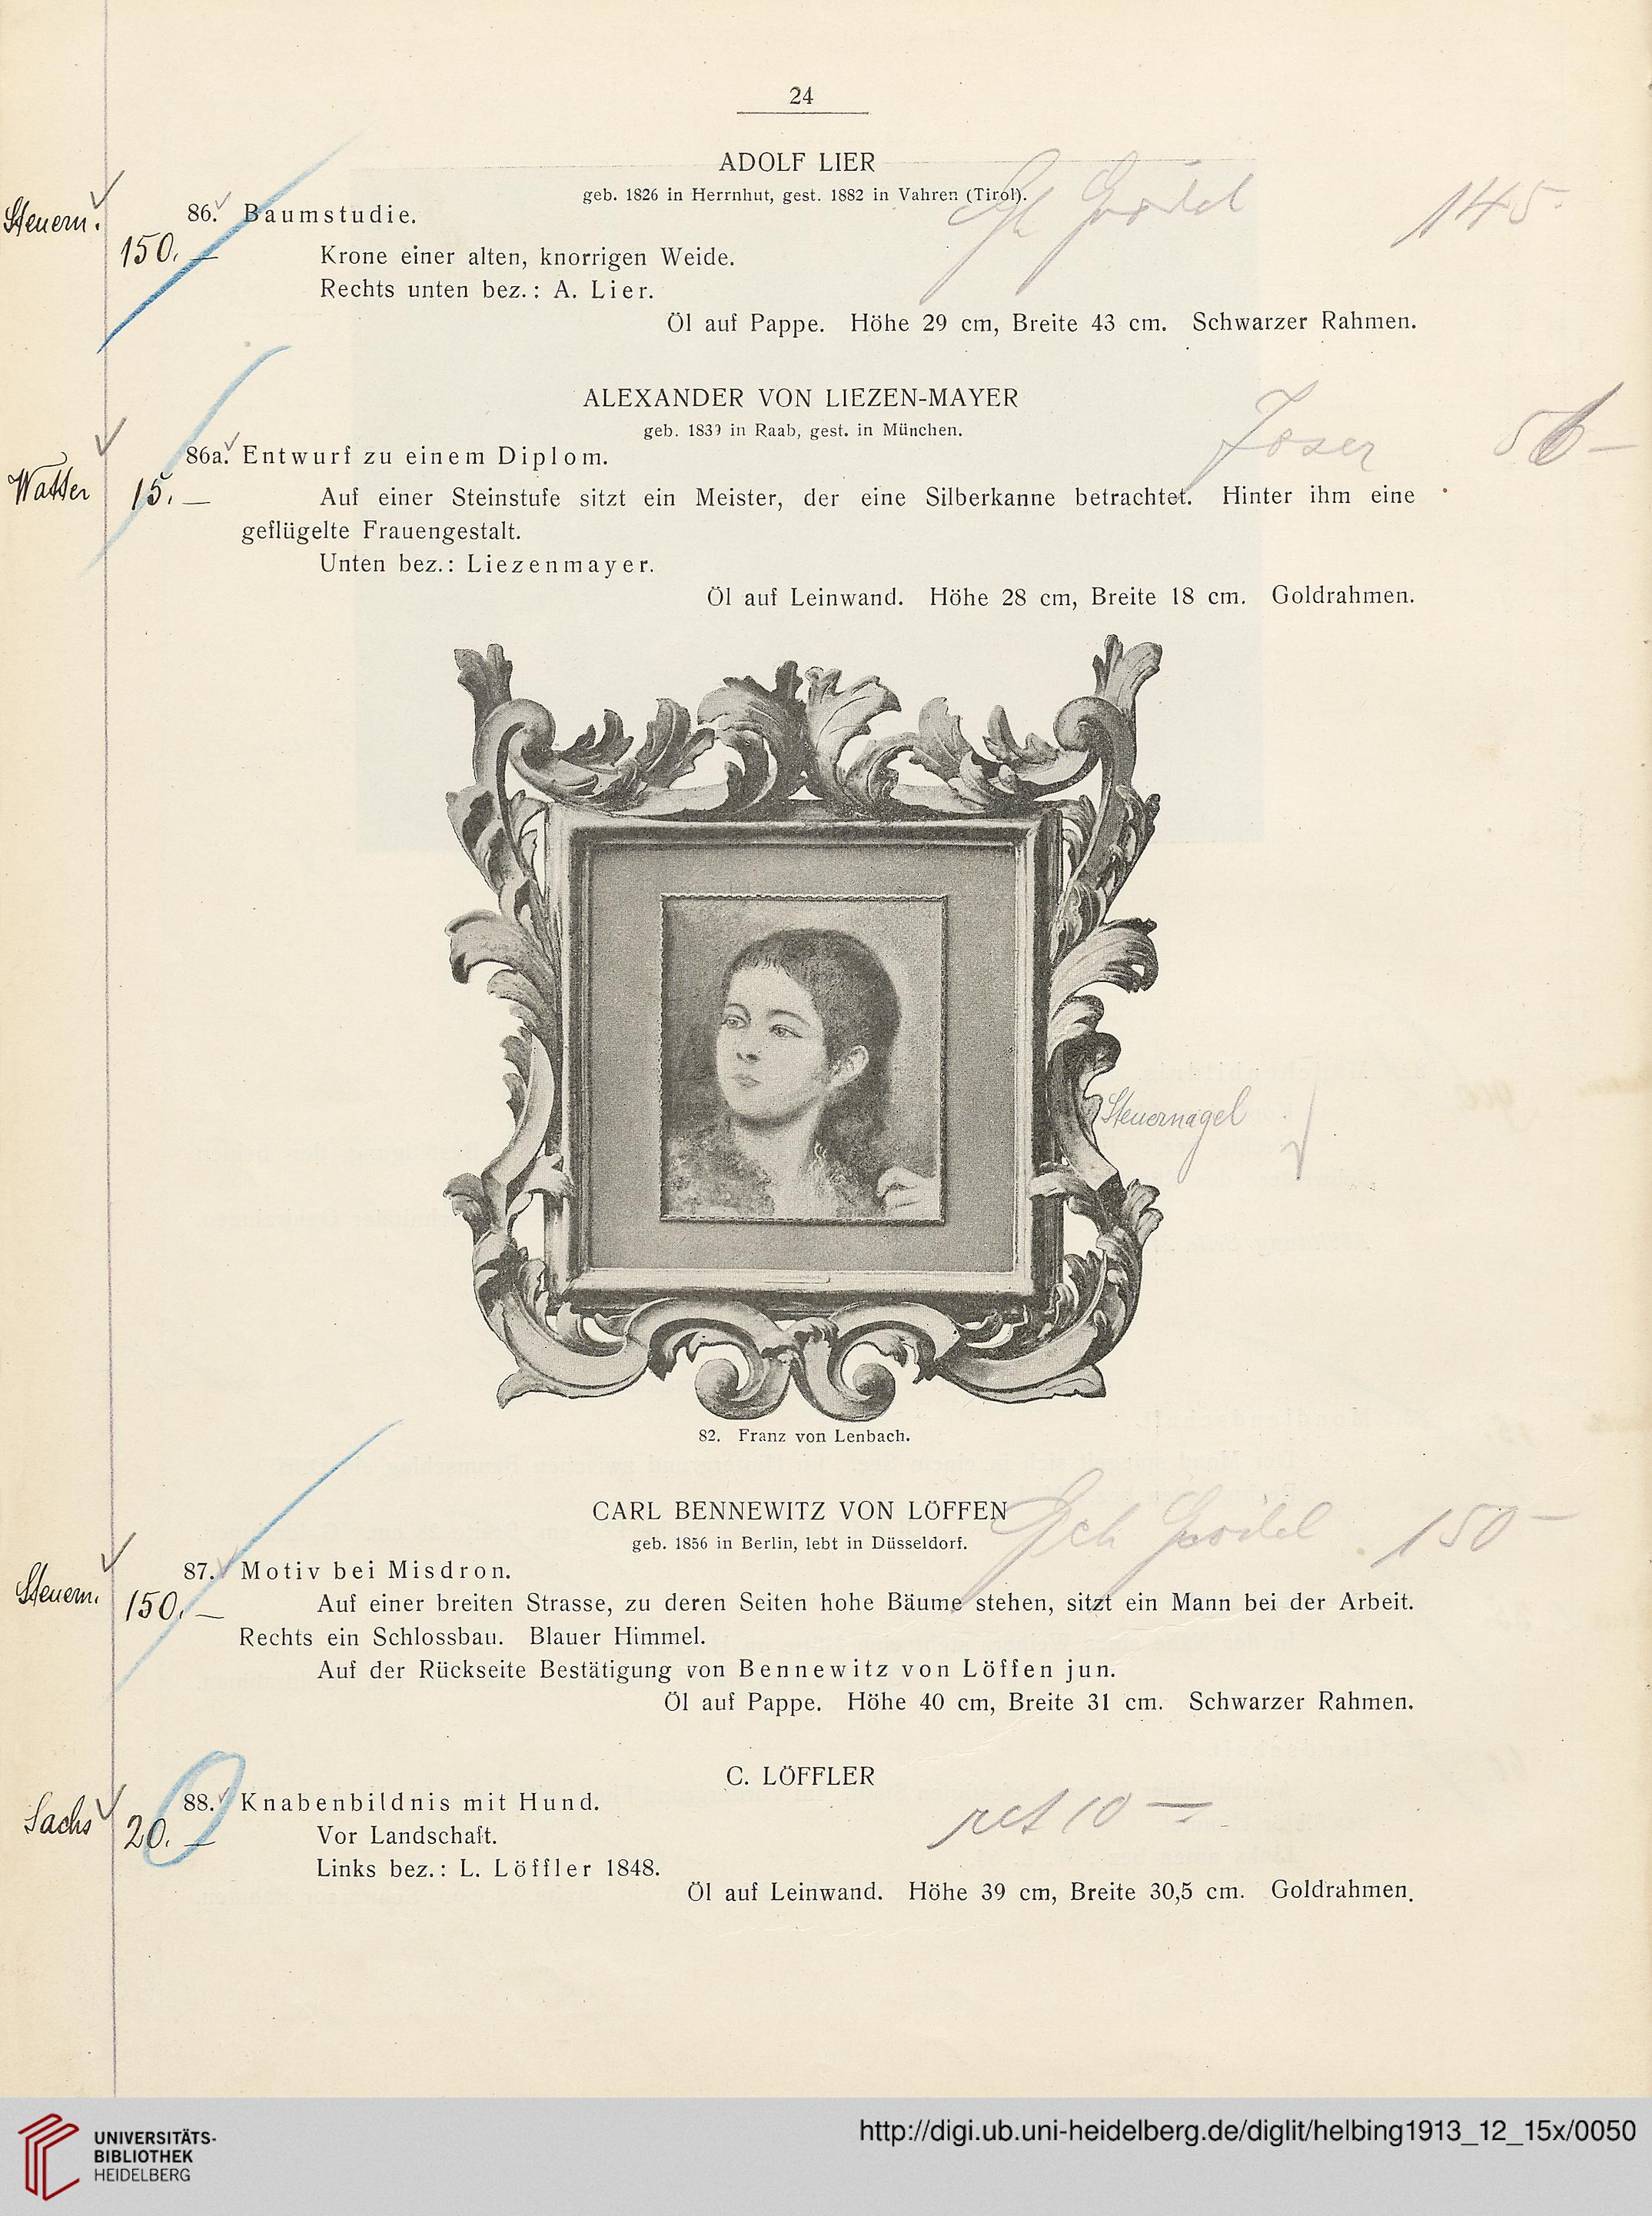 24
ADOLF LIER
geb. 1826 in Herrnhut, gest. 1882 in Vahren (Tirol).
145-
Steuern.
86. Baumstudie.
150.—
Krone einer alten, knorrigen Weide.
Rechts unten bez.: A. Lier.
Öl auf Pappe. Höhe 29 cm, Breite 43 cm. Schwarzer Rahmen.
ALEXANDER VON LIEZEN-MAYER
geb. 1839 in Raab, gest. in München.
86a. Entwurf zu einem Diplom.
15.—
Auf einer Steinstufe sitzt ein Meister, der eine Silberkanne betrachtet. Hinter ihm eine
geflügelte Frauengestalt.
Unten bez.: Liezenmayer.
Öl auf Leinwand. Höhe 28 cm, Breite 18 cm. Goldrahmen.
Steuernagel
82. Franz von Lenbach.
CARL BENNEWITZ VON LÖFFEN
150—
geb. 1856 in Berlin, lebt in Düsseldorf.
87. Motiv bei Misdron.
Steuern. 150.—
Auf einer breiten Strasse, zu deren Seiten hohe Bäume stehen, sitzt ein Mann bei der Arbeit.
Rechts ein Schlossbau. Blauer Himmel.
Auf der Rückseite Bestätigung von Bennewitz von Löffen jun.
Öl auf Pappe. Höhe 40 cm, Breite 31 cm. Schwarzer Rahmen.
C. LÖFFLER
88. Knabenbildnis mit Hund.
ret 10—
Sachs 20.—
Vor Landschaft.
Links bez.: L. Löffler 1848.
Öl auf Leinwand. Höhe 39 cm, Breite 30,5 cm. Goldrahmen.
UNIVERSITÄTS-
BIBLIOTHEK
HEIDELBERG
http://digi.ub.uni-heidelberg.de/diglit/helbing1913_12_15x/0050